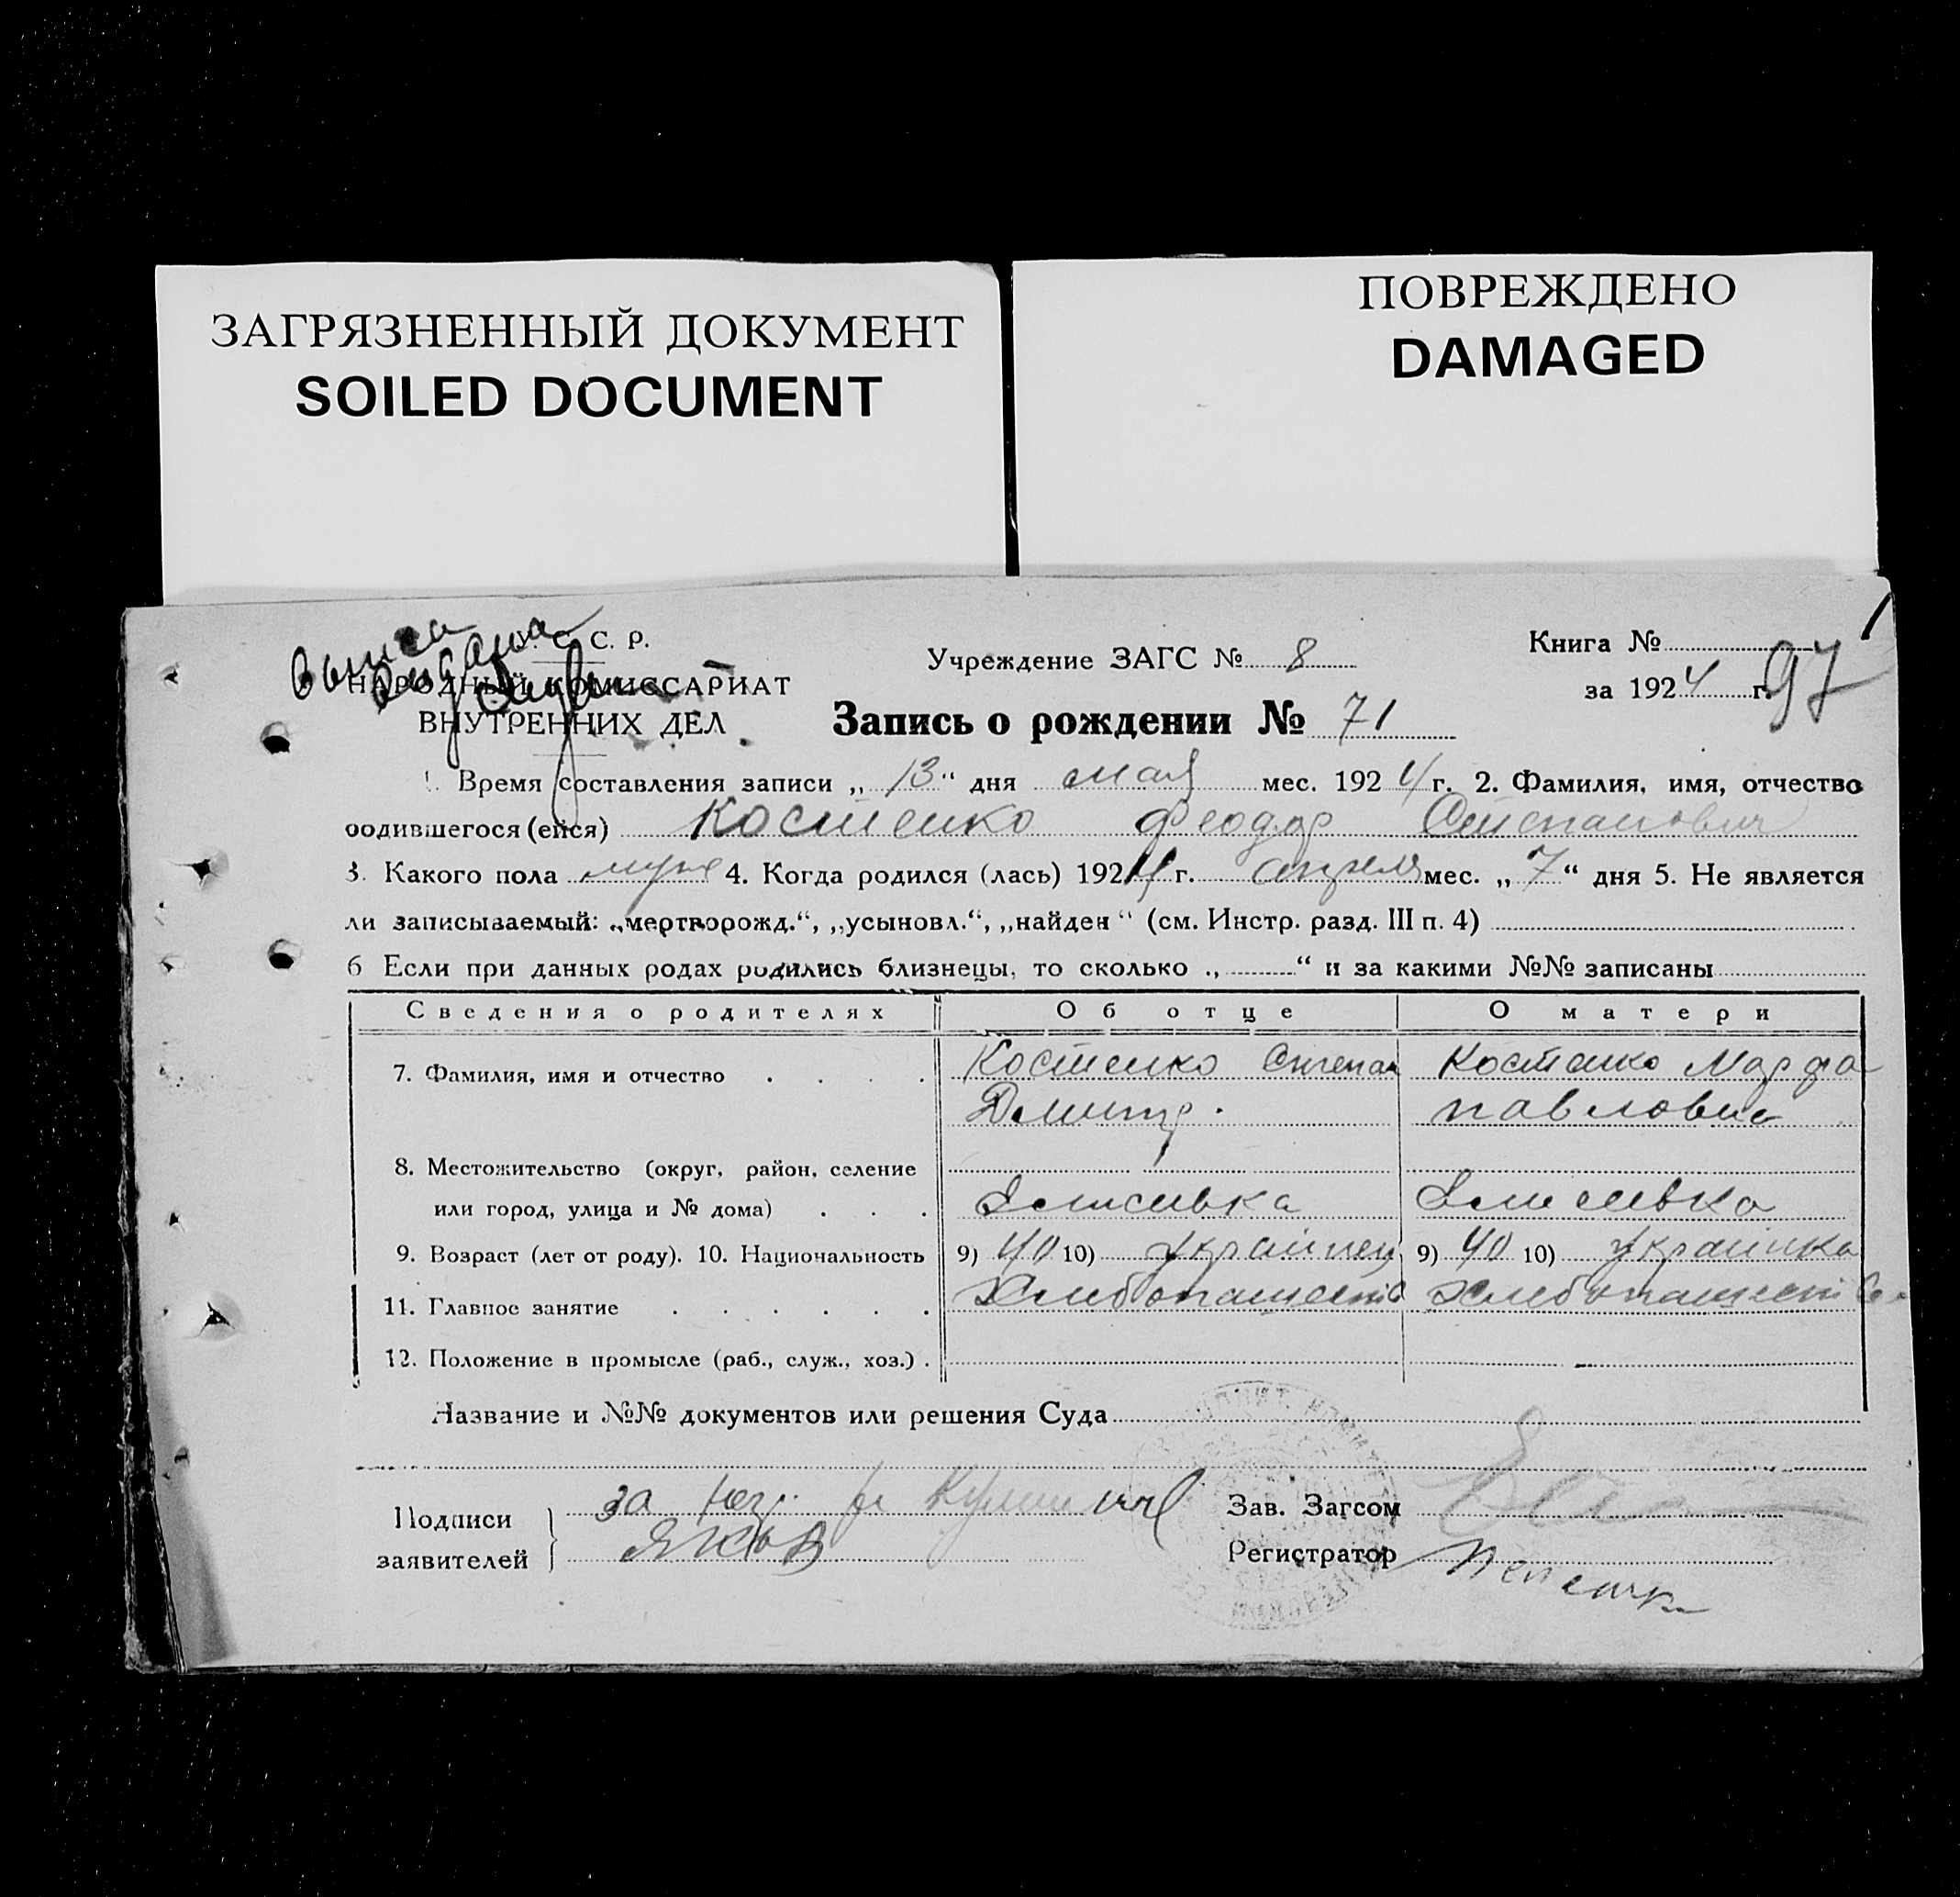 ЗАГРЯЗНЕННЫЙ ДОКУМЕНТ
SOILED DOCUMENT
ПОВРЕЖДЕНО
DAMAGED
У. С. С. Р.
НАРОДНЫЙ КОМИССАРИАТ
ВНУТРЕННИХ ДЕЛ
выдана
Учреждение ЗАГС № 8
Книга №
за 1924 г.
97
Запись о рождении № 71
1. Время составления записи „13“ дня мая мес. 1924 г. 2. Фамилия, имя, отчество
родившегося (ейся) Костенко Феодор Степанович
3. Какого пола муж 4. Когда родился (лась) 1924 г. апреля мес. „7“ дня 5. Не является
ли записываемый: „мертворожд.“, „усыновл.“, „найден“ (см. Инстр. разд. III п. 4)
6 Если при данных родах родились близнецы, то сколько „ “ и за какими №№ записаны
Сведения о родителях Об отце О матери
7. Фамилия, имя и отчество Костенко Степан Костенко Марфа
Дмитр. Павловна
8. Местожительство (округ, район, селение
или город, улица и № дома)
9. Возраст (лет от роду). 10. Национальность 9) 40 10) Украинец 9) 40 10) Украинка
11. Главное занятие
12. Положение в промысле (раб., служ., хоз.)
Название и №№ документов или решения Суда
Подписи
заявителей
за
Яков
Зав. Загсом
Регистратор